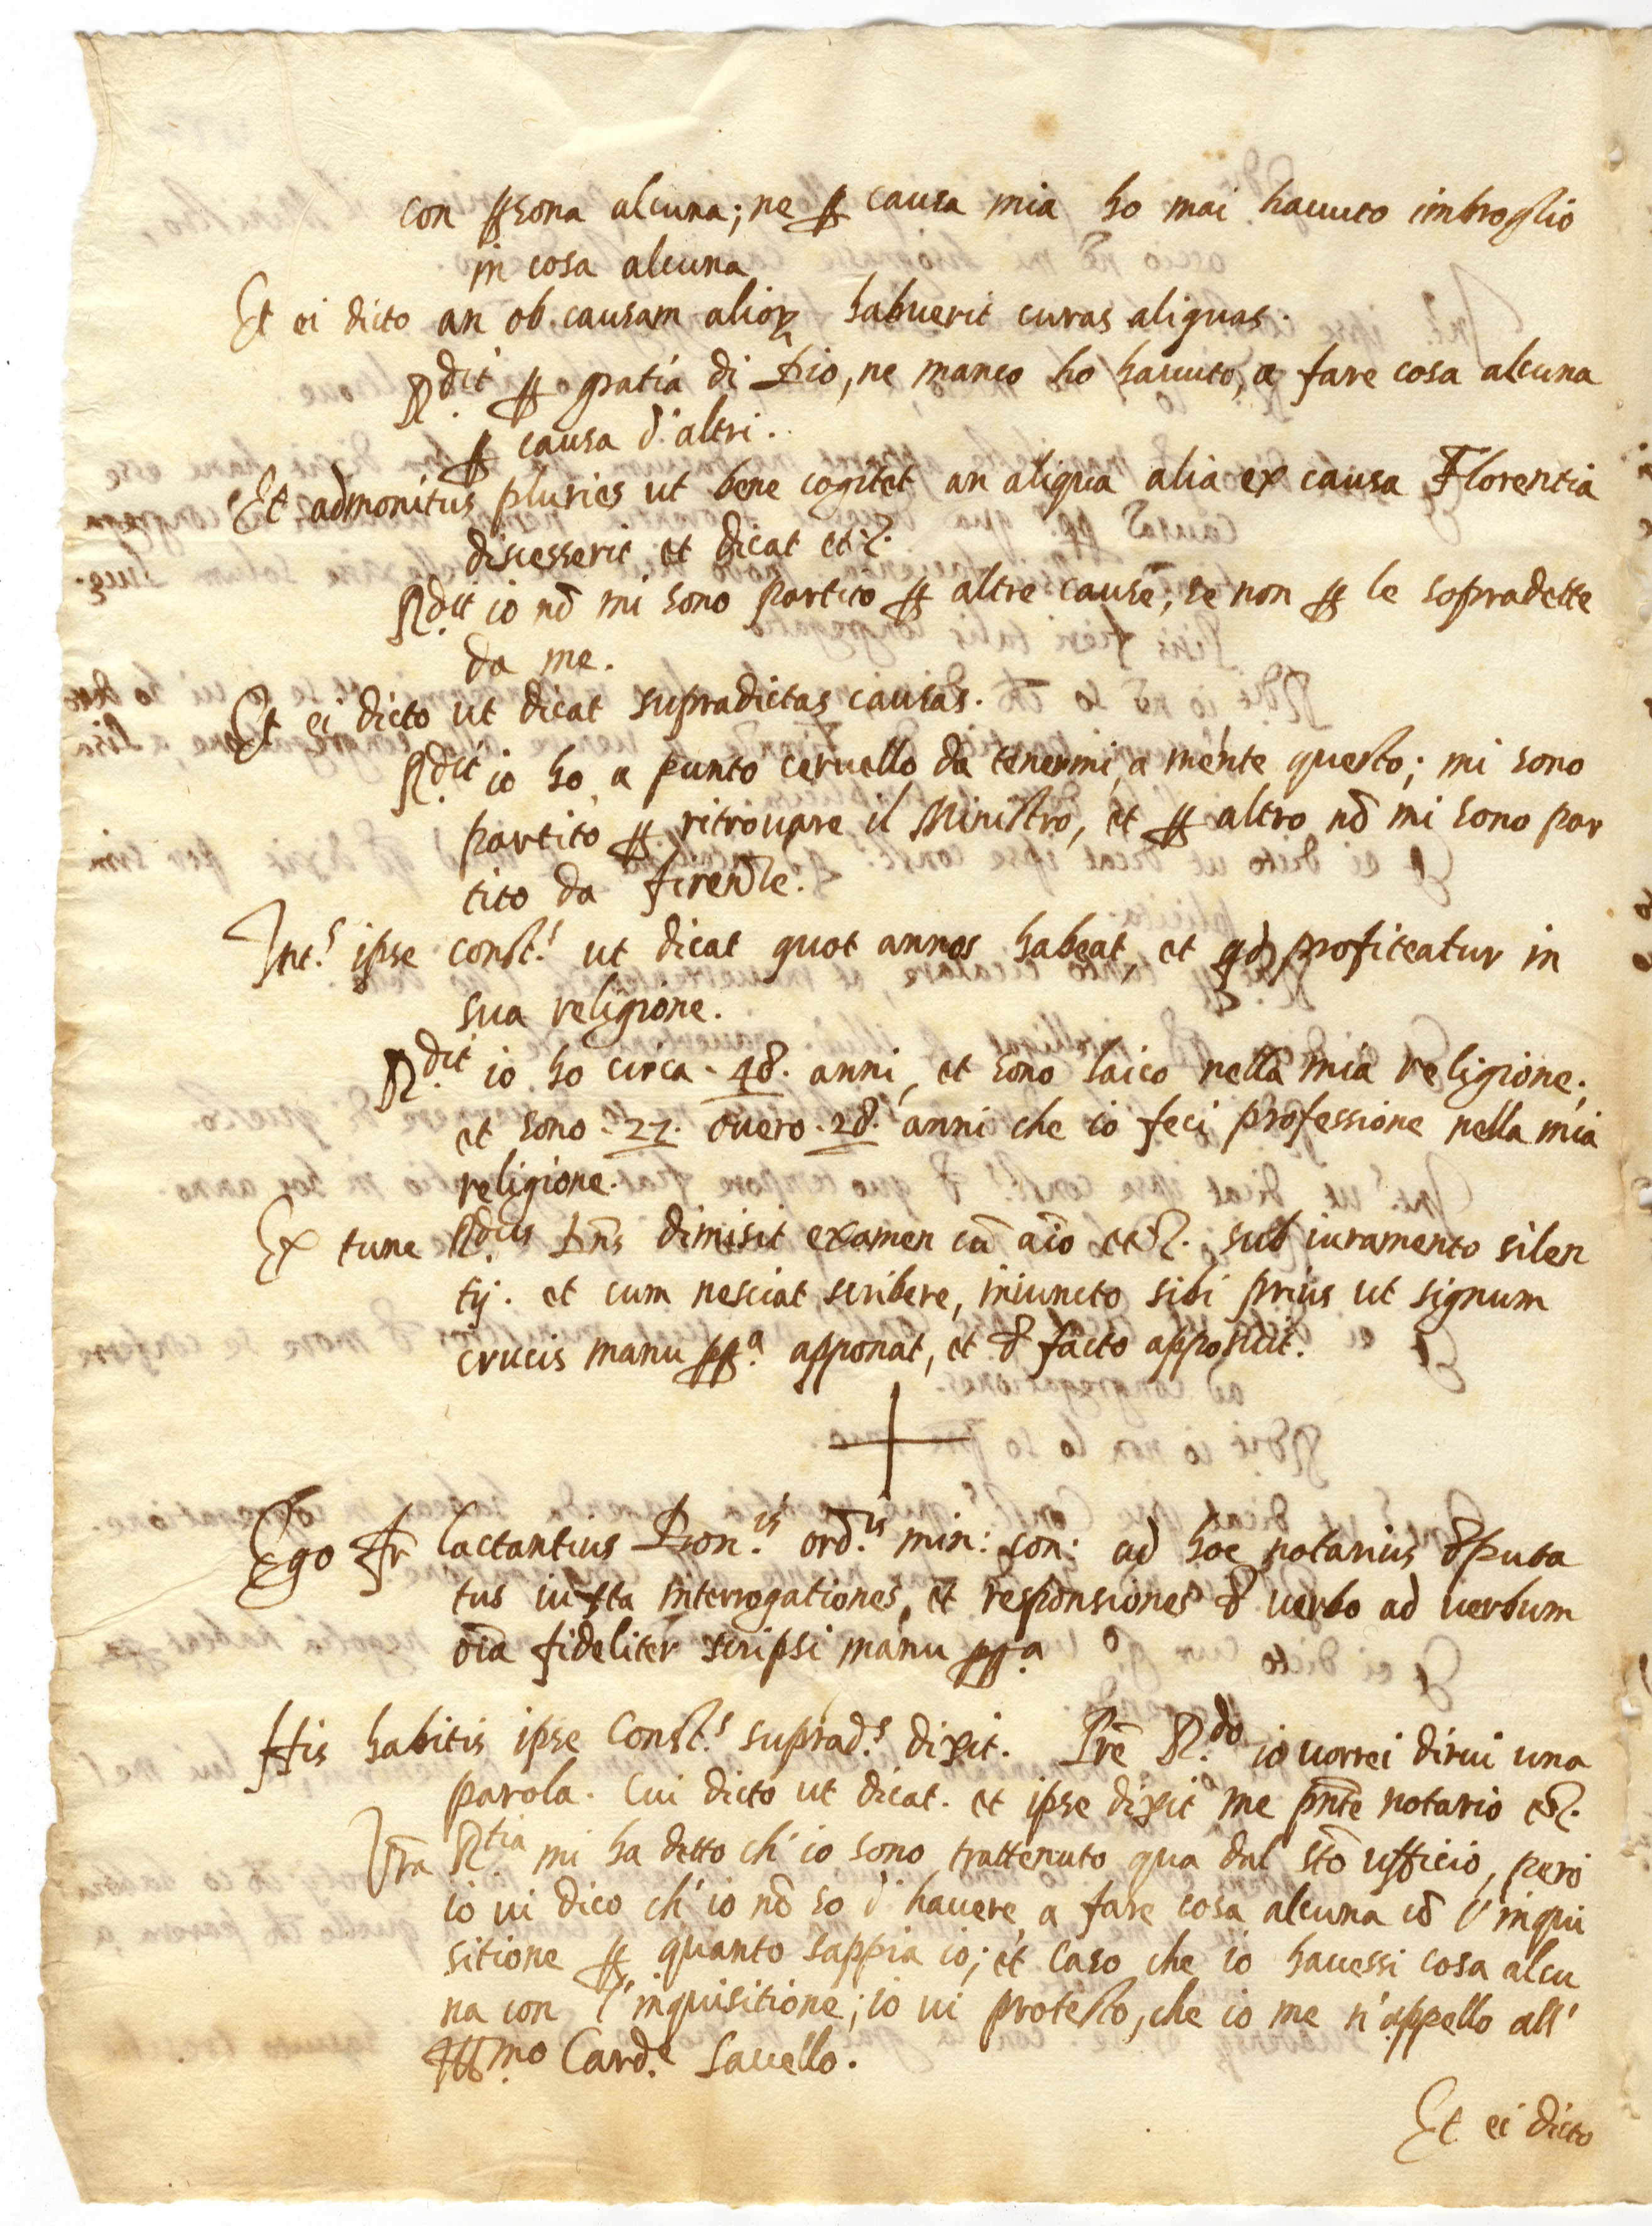 con ꝑsona alcuna; ne ꝑ causa mia ho mai hauuto imbroglio
in cosa alcuna
Et ei dicto an ob causam alioꝝ habuerit curas aliquas.
R.dit ꝑ gratia di Dio, ne manco ho hauuto, a fare cosa alcuna
ꝑ causa d'altri.
Et admonitus pluries ut bene cogitet an aliqua alia ex causa Florentia
discesserit et dicat etc.
R.dit io nō mi sono partito ꝑ altre cause, se non ꝑ le sopradette
da me.
Et ei dicto ut dicat supradictas causas.
R.dit io ho a punto ceruello da tenermi a mente questo; mi sono
partito ꝑ ritrouare il Ministro, et ꝑ altro nō mi sono par
tito da firenze.
Int.s ipse const.s ut dicat quot annos habeat, et qd profiteatur in
sua religione.
R.dit io ho circa .48. anni, et sono laico nella mia religione,
et sono .27. ouero .28. anni che io feci professione nella mia
religione.
Ex tunc R.dus Dn̄s dimisit examen cū aīo etc. sub iuramento silen
tij. et cum nesciat scribere, iniuncto sibi prius ut signum
crucis manu ꝓp.a apponat, et d facto apposuit.
Ego Fr Lactantius Bon.is ord.is min: con: ad hoc notarius deputa
tus iuxta interrogationes, et responsiones d uerbo ad uerbum
oīa fideliter scripsi manu ꝓp.a
His habitis ipse Const.s suprad.s dixit. Prē R.do io uorrei dirui una
parola. Cui dicto ut dicat. et ipse dixit me pn̄te notario etc.
Vrā R.tia mi ha detto ch'io sono trattenuto qua dal stō ufficio, però
io ui dico ch'io nō so d'hauere a fare cosa alcuna cō l'inqui
sitione ꝑ quanto sappia io; et caso che io hauessi cosa alcu
na con l'inquisitione; io ui protesto, che io me n'appello all'
Ill.mo Card.e Sauello.
Et ei dicto